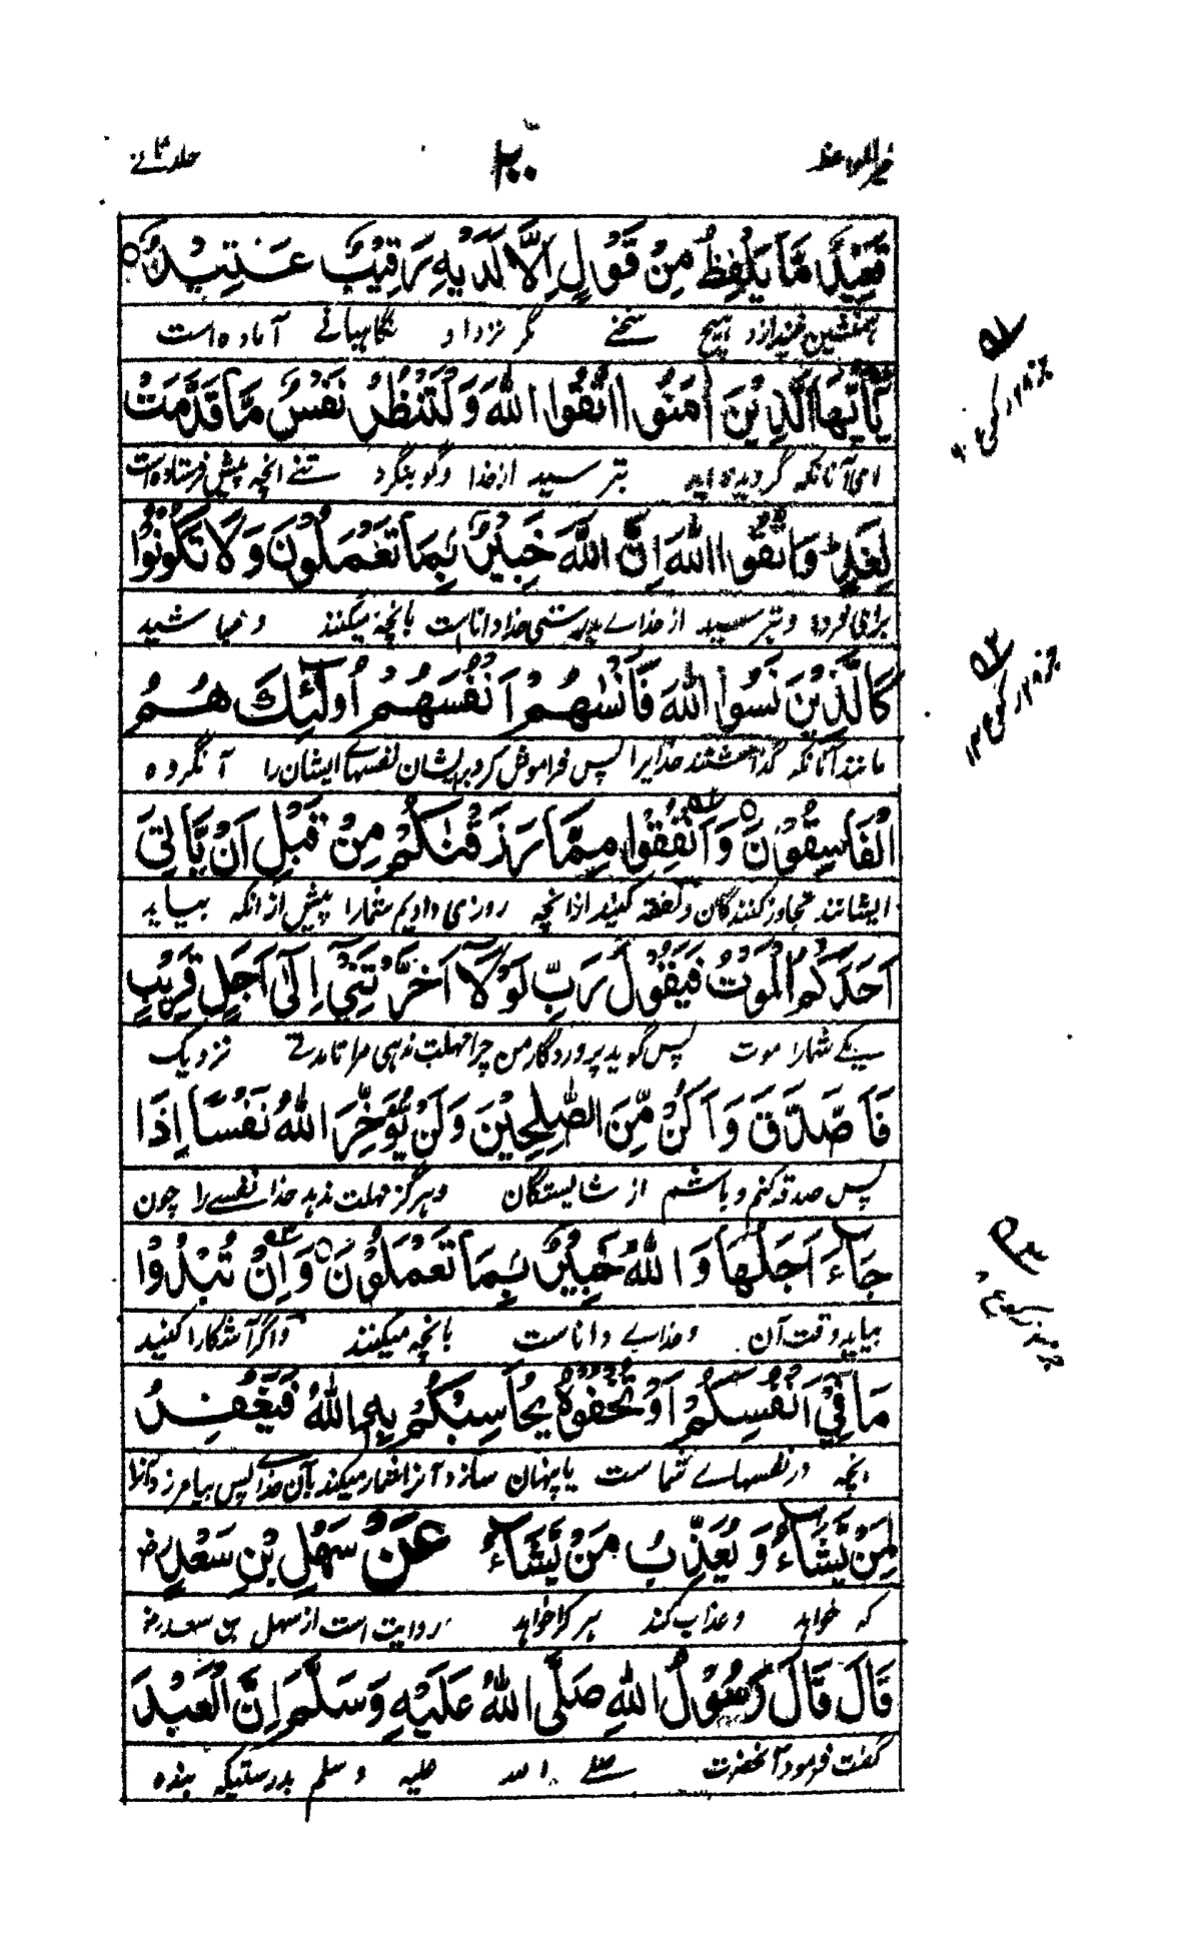 خیر المواعظ ۲۰۰ جلد ثانے
قَعِیْدٌ مَا یَلْفِظُ مِنْ قَوْلٍ اِلَّا لَدَیْهِ رَقِیْبٌ عَتِیْدٌ○
ہمنشین نیندازد ہیچ سخنے مگر نزد او نگاہبانے آمادہ است
یٰۤاَیُّهَا الَّذِیْنَ اٰمَنُوا اتَّقُوا اللهَ وَلْتَنْظُرْ نَفْسٌ مَّا قَدَّمَتْ
ای آنانکہ گرویدہ اید بترسید از خدا و گو بنگرد تنے انچہ پیش فرستادہ است
لِغَدٍ وَاتَّقُوا اللهَ اِنَّ اللهَ خَبِیْرٌۢ بِمَا تَعْمَلُوْنَ وَلَا تَكُوْنُوْا
برای فردا و بترسید از خداے بدرستی خدا داناست بانچہ میکنند و مباشید
كَالَّذِیْنَ نَسُوا اللهَ فَاَنْسٰهُمْ اَنْفُسَهُمْ اُولٰٓئِكَ هُمُ
مانند آنانکہ گذاشتند خدایرا پس فراموش کرد بریشان نفسہاے ایشان را آنگروہ
الْفَاسِقُوْنَ○ وَاَنْفِقُوْا مِمَّا رَزَقْنٰكُمْ مِنْ قَبْلِ اَنْ یَّاْتِیَ
ایشانند تجاوز کنندگان و نفقہ کنید ازانچہ روزی دادیم شمارا پیش از انکہ بیاید
اَحَدَكُمُ الْمَوْتُ فَیَقُوْلَ رَبِّ لَوْلَاۤ اَخَّرْتَنِیْۤ اِلٰۤی اَجَلٍ قَرِیْبٍ
یکے شمارا موت پس گوید پروردگار من چرا مہلت ندہی مرا تا مدتے نزدیک
فَاَصَّدَّقَ وَاَكُنْ مِّنَ الصّٰلِحِیْنَ وَلَنْ یُّؤَخِّرَ اللهُ نَفْسًا اِذَا
پس صدقہ کنم و باشم از شایستگان و ہرگز مہلت ندہد خداے نفسے را چون
جَآءَ اَجَلُهَا وَاللهُ خَبِیْرٌۢ بِمَا تَعْمَلُوْنَ○ وَاِنْ تُبْدُوْا
بیاید وقت آن وخداے داناست بانچہ میکنند واگر آشکارا کنید
مَا فِیْۤ اَنْفُسِكُمْ اَوْ تُخْفُوْهُ یُحَاسِبْكُمْ بِهِ اللهُ فَیَغْفِرُ
انچہ در نفسہاے شماست یا پنہان سازد آنرا شمار میکند بآن خداے پس بیامرزد آنرا
لِمَنْ یَّشَآءُ وَ یُعَذِّبُ مَنْ یَّشَآءُ عَنْ سَهْلِ بْنِ سَعْدٍ رض
کہ خواہد و عذاب کند ہر کرا خواہد روایت است از سہل بن سعد رض
قَالَ قَالَ رَسُوْلُ اللهِ صَلَّی اللهُ عَلَیْهِ وَسَلَّمَ اِنَّ الْعَبْدَ
گفت فرمود آنحضرت صلے اللہ علیہ وسلم بدرستیکہ بندہ
۵۱
جز ۲۸ رکوع
۵۲
جز ۲۸ رکوع ۱۲
۵۳
جز رکوع ۸